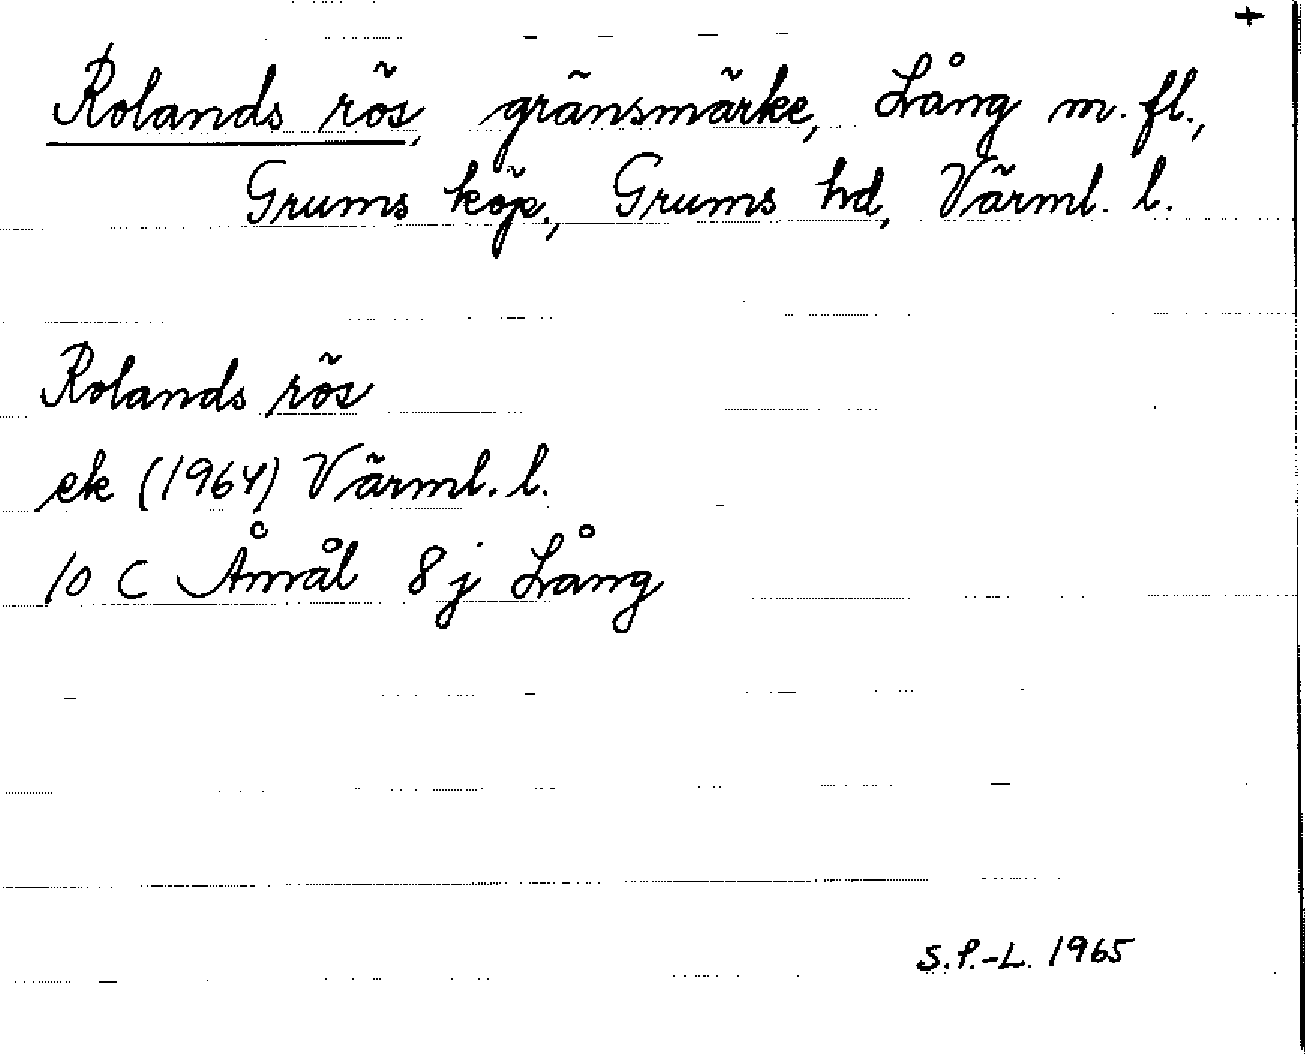 +
Rolands rös, gränsmärke, Lång m. fl.,
Grums köp., Grums hd, Värml. l.
Rolands rös
ek (1964) Värml. l.
10 C Åmål 8 j Lång
S.P.-L. 1965